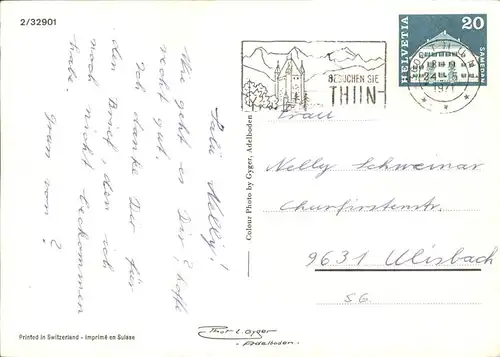 2/32901
Salü Nelly!
Wie geht es Dir? hoffe
recht gut.
Ich danke Dir für
den Brief, den ich
noch nicht bekommen
habe.
Gruss von ?
Printed in Switzerland - Imprimé en Suisse
Colour Photo by Gyger, Adelboden
BESUCHEN SIE
THUN
24
1971
HELVETIA
20
SAMEDAN
Frau
Nelly Schweinar
Churfirstenstr.
9631 Ulisbach
SG.
Phot. E. Gyger
- Adelboden -